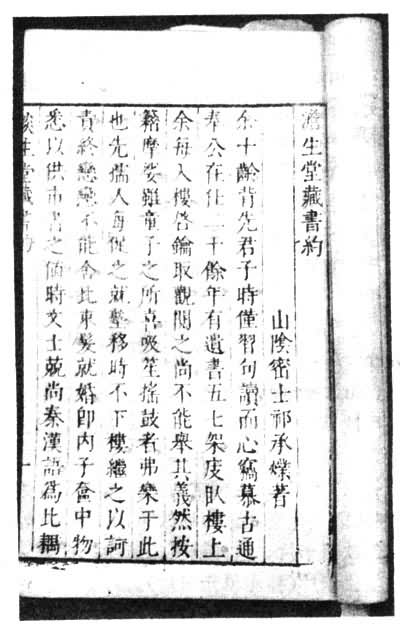 澹生堂藏書約
山陰密士祁承㸁著
余十齡背先君子時僅習句讀而心竊慕古通
奉公在仕二十餘年有遺書五七架庋臥樓上
余每入樓啓鑰取觀閱之尚不能舉其義然按
籍摩挲雖童子之所喜吸笙搖鼓者弗樂于此
也先孺人每促之就塾移時不下樓繼之以訶
責終戀戀不能舍比束髮就婚卽內子奩中物
悉以供市書之値時文士競尚秦漢語爲比耦
生堂藏書